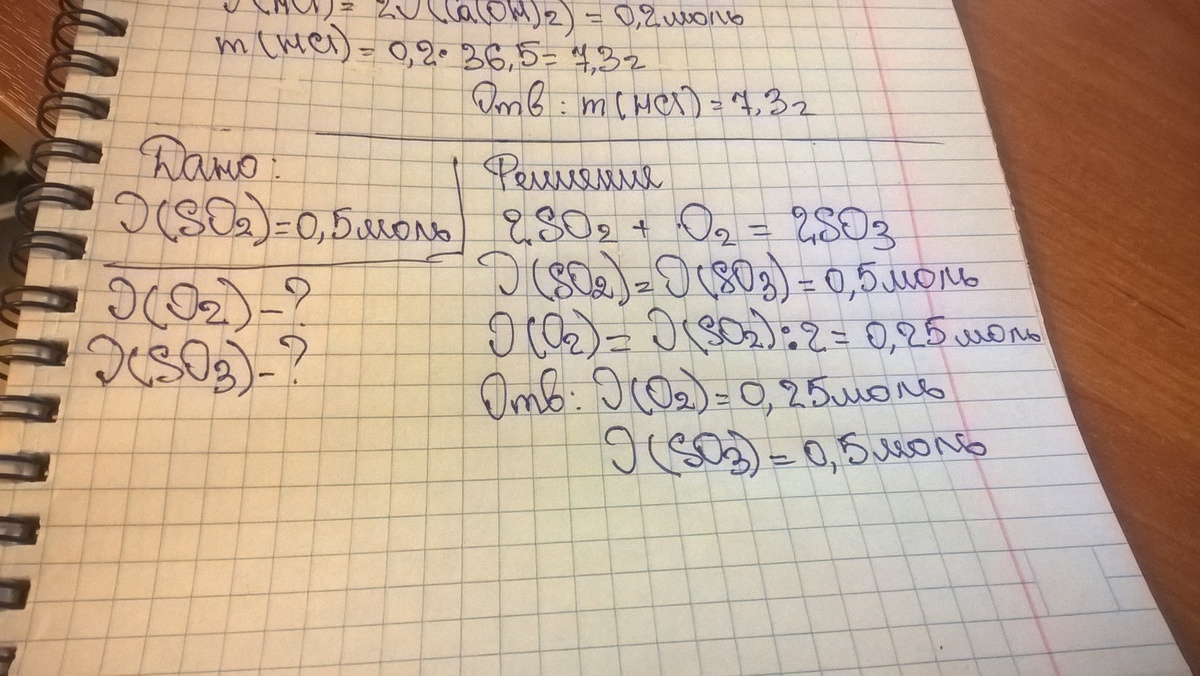 ν(HCl) = 2ν(Ca(OH)2) = 0,2моль
m(HCl) = 0,2・36,5 = 7,3г
Отв: m(HCl) = 7,3г
Дано:
ν(SO2) = 0,5моль
ν(O2) – ?
ν(SO3) – ?
Решения
2SO2 + O2 = 2SO3
ν(SO2) = ν(SO3) = 0,5моль
ν(O2) = ν(SO2) : 2 = 0,25моль
Отв: ν(O2) = 0,25моль
ν(SO3) = 0,5моль